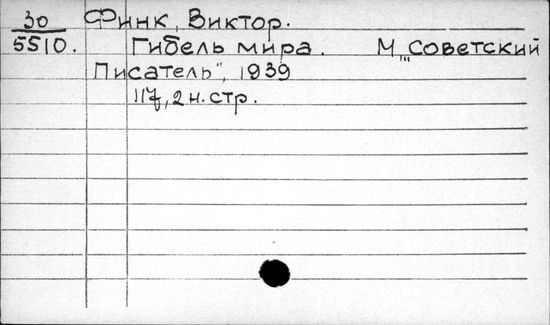 30 Финк, Виктор.
5510. Гибель мира. М „Советский
Писатель", 1939
117, 2 н. стр.